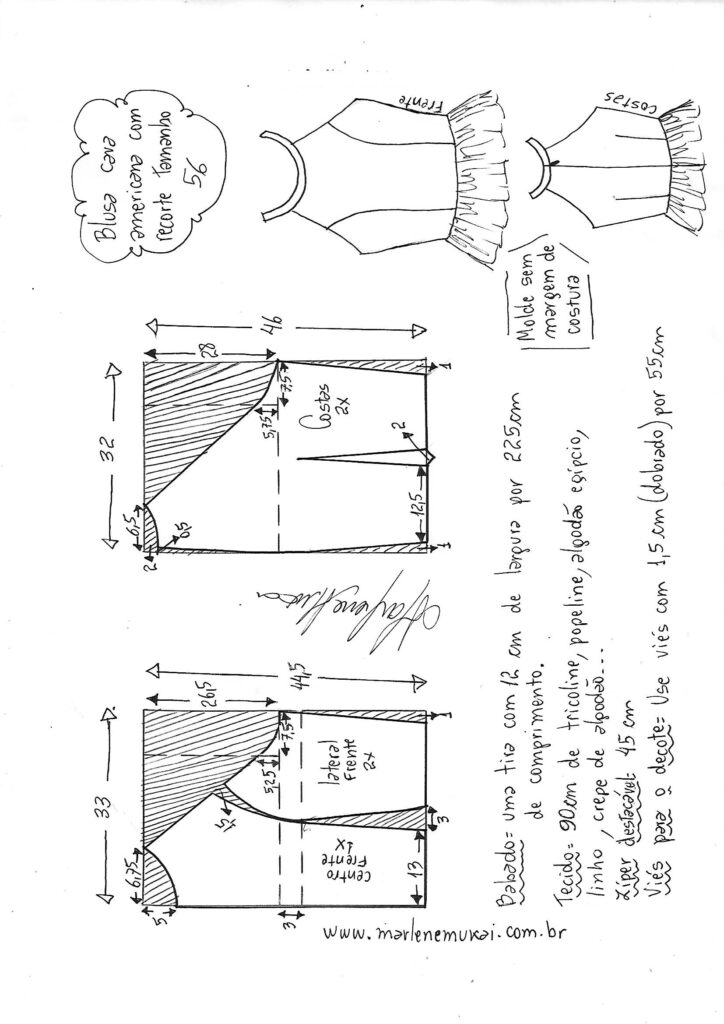 Blusa cava
americana com
recorte tamanho
56
Frente
Costas
Molde sem
margem de
costura
33
6,75
5
26,5
44,5
7,5
5,25
1,5
lateral
Frente
2x
Centro
Frente
1x
13
3
3
1
32
6,5
2
0,5
28
46
7,5
5,75
Costas
2x
12,5
2
1
1
www.marlenemukai.com.br
Babado= uma tira com 12 cm de largura por 225cm
de comprimento.
Tecido= 90cm de tricoline, popeline, algodão egípcio,
linho, crepe de algodão...
Zíper destacável: 45 cm
Viés para o decote= Use viés com 1,5cm (dobrado) por 55cm